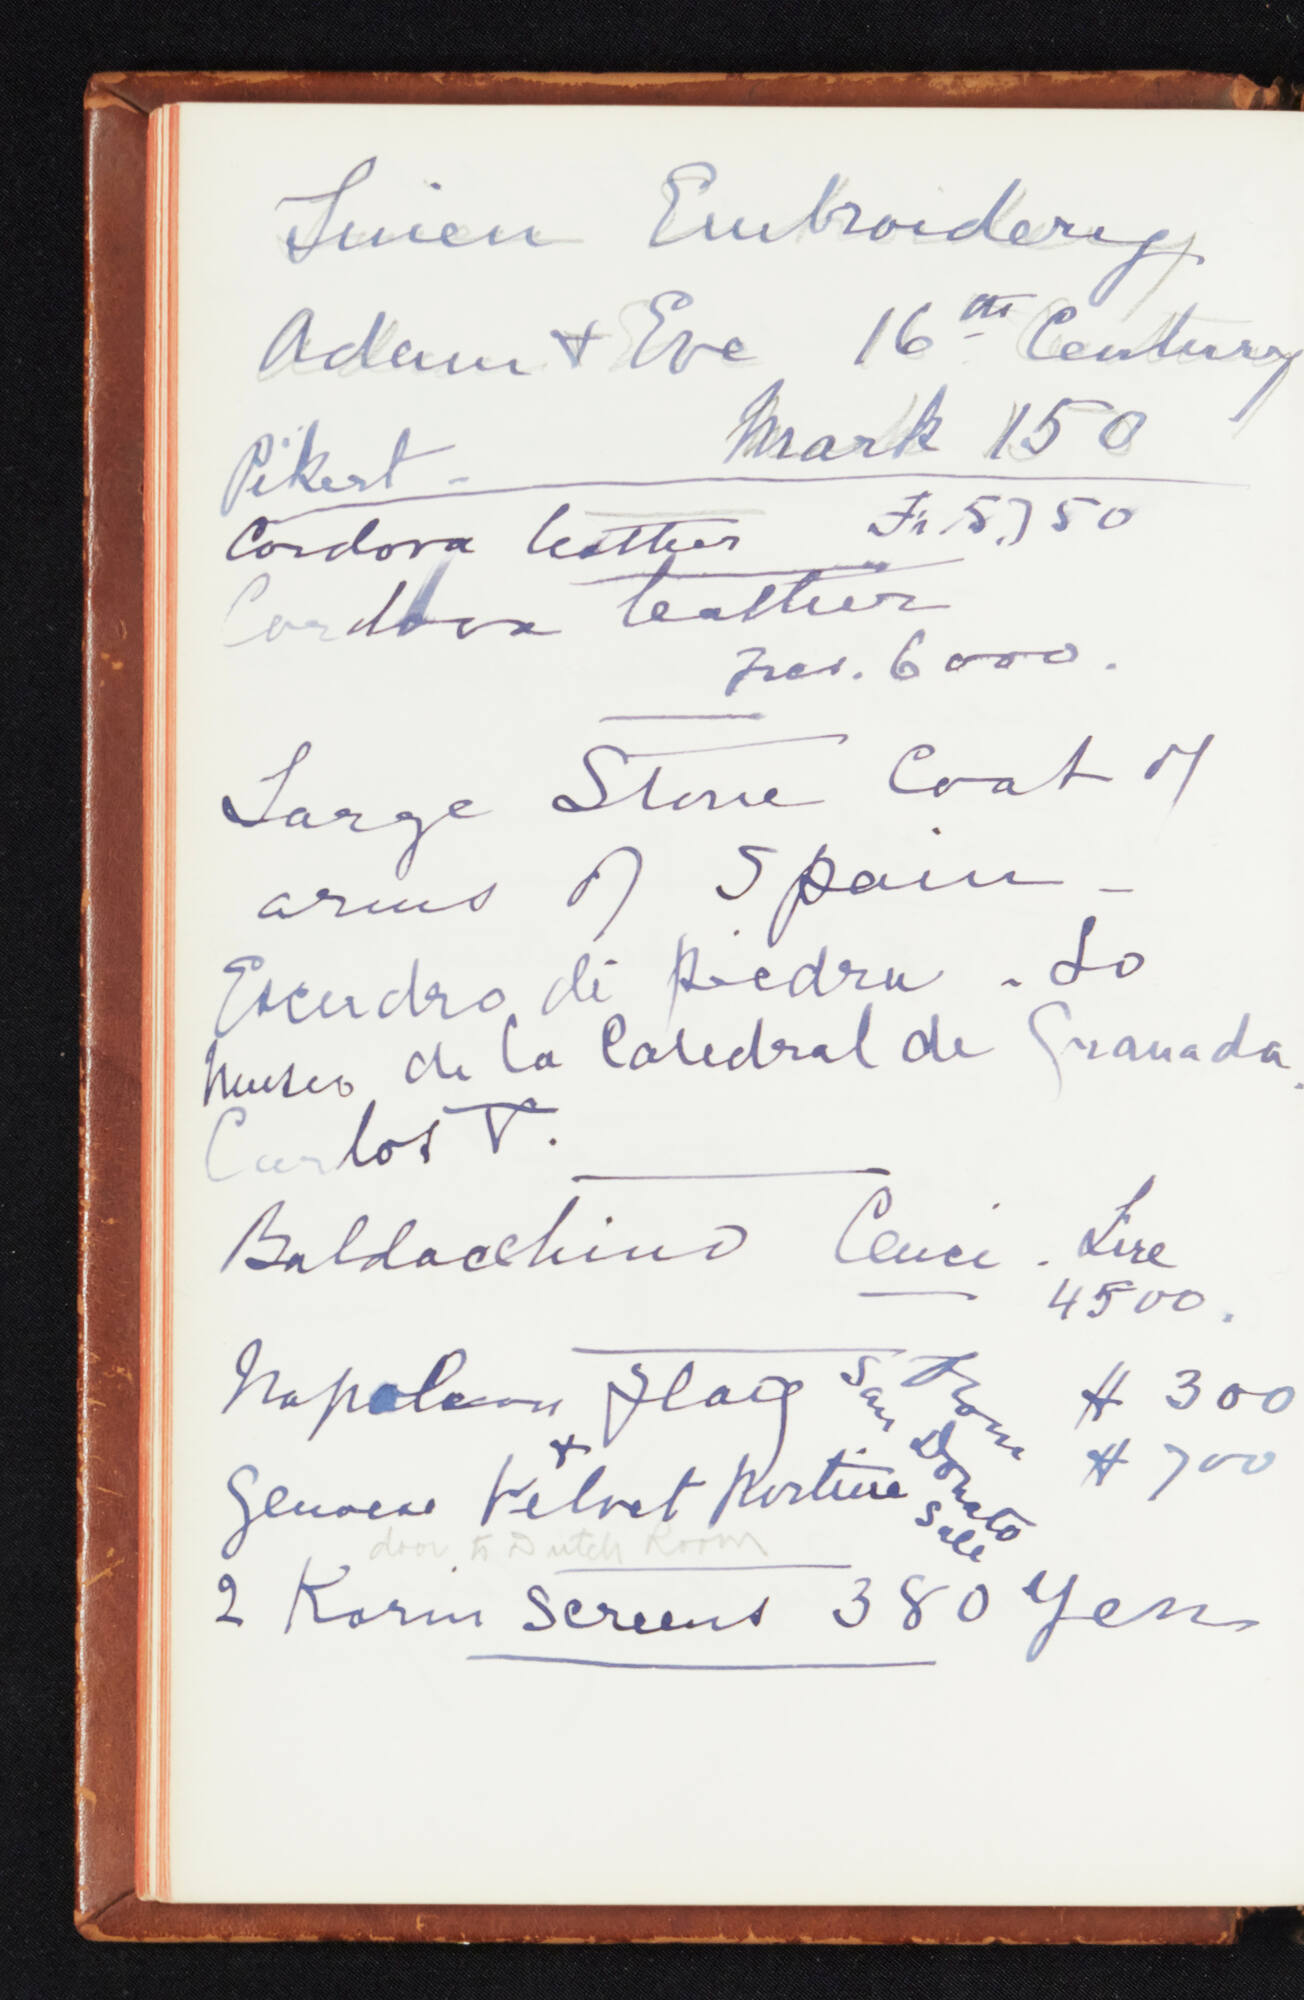 Linen Embroidery
Adam & Eve 16th Century
Pikert - Mark 150
Cordova leather Fr. 5,750
Cordova leather
Frcs. 6000.
Large Stone Coat of
arms of Spain -
Escudro di piedra - Lo
Museo de la Catedral de Granada.
Carlos V.
Baldacchino Cenci. Lire
4500.
Napoleon Flag # 300
+
Genoese Velvet Portiere # 700
from
San Donato
Sale
door to Dutch Room
2 Korin Screens 380 Yen